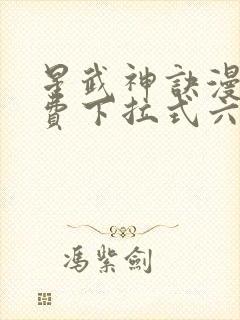 星武神訣漫
費下拉式六
馮紫劍